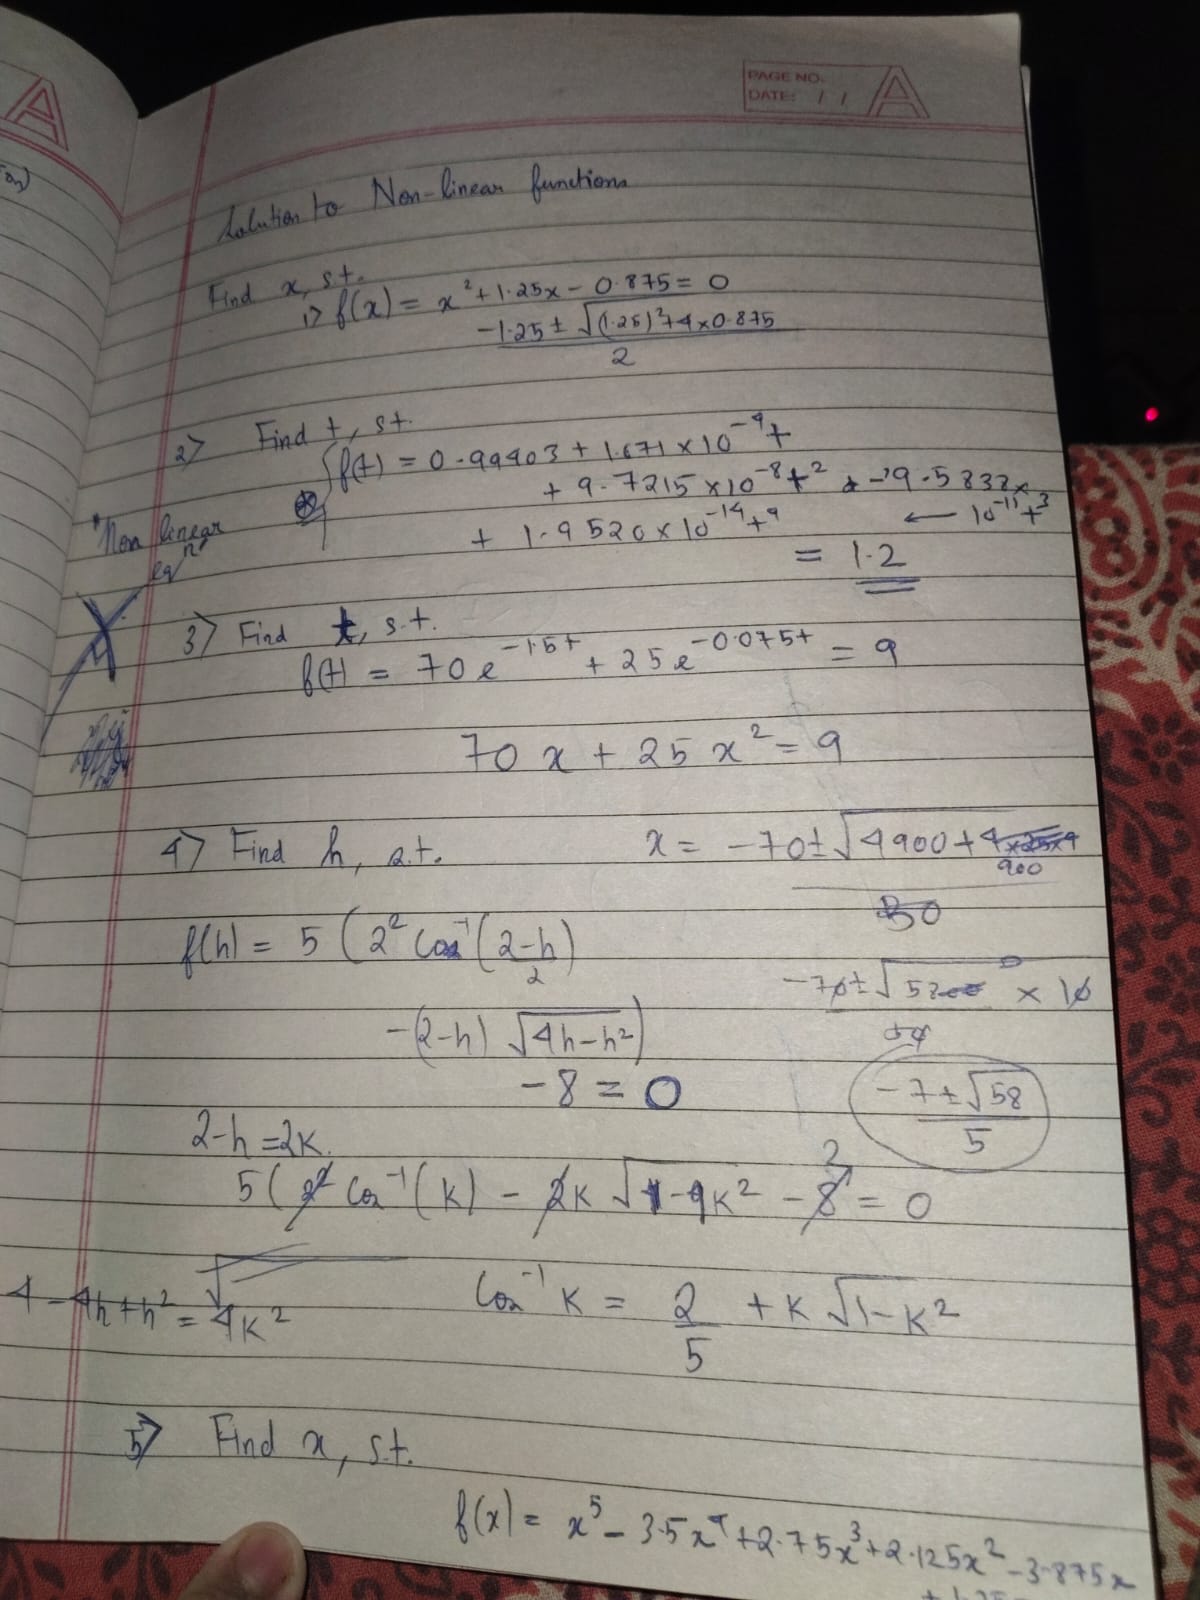 PAGE NO.
DATE: / /
Solution to Non-linear functions
Find x, s.t.
1> f(x) = x² + 1.25x - 0.875 = 0
-1.25 ± √(1.25)² + 4 × 0.875
2
2> Find t, s.t.
f(t) = 0.99403 + 1.671 × 10⁻⁴t
+ 9.7215 × 10⁻⁸t² + -9.5838 ×
← 10⁻¹¹t³
+ 1.9520 × 10⁻¹⁴t⁴
= 1.2
* Non linear
eqⁿ
3> Find t, s.t.
f(t) = 70e^-1.5t + 25e^-0.075t = 9
70x + 25x² = 9
4> Find h, s.t.
x = -70 ± √4900 + 4×25×9
900
50
f(h) = 5 (2² Cos⁻¹ (2-h)
2
-(2-h) √4h-h²)
- 8 = 0
-70 ± √5800 × 10
50
-7 ± √58
5
2-h = 2K.
5(2² Cos⁻¹(K) - 2K √1-K² - 8 = 0
2
4 - 4h + h² = 4K²
Cos⁻¹ K = 2 + K √1-K²
5
5> Find x, s.t.
f(x) = x⁵ - 3.5x⁴ + 2.75x³ + 2.125x² - 3.875x